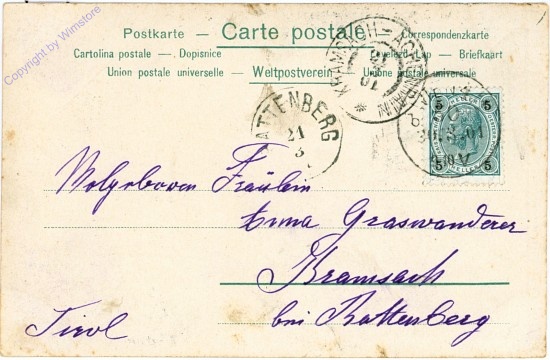 Copyright by Wimstore
Postkarte — Carte postale — Correspondenzkarte
Cartolina postale — Dopisnice Levelező-Lap — Briefkaart
Union postale universelle — Weltpostverein — Union postale universelle
KRAMSACH-ACHENRAIN
10
RATTENBERG
21
3
5 5
5 5
Wolgeboren Fräulein
Anna Graswanderer
Kramsach
bei Rattenberg
Tirol